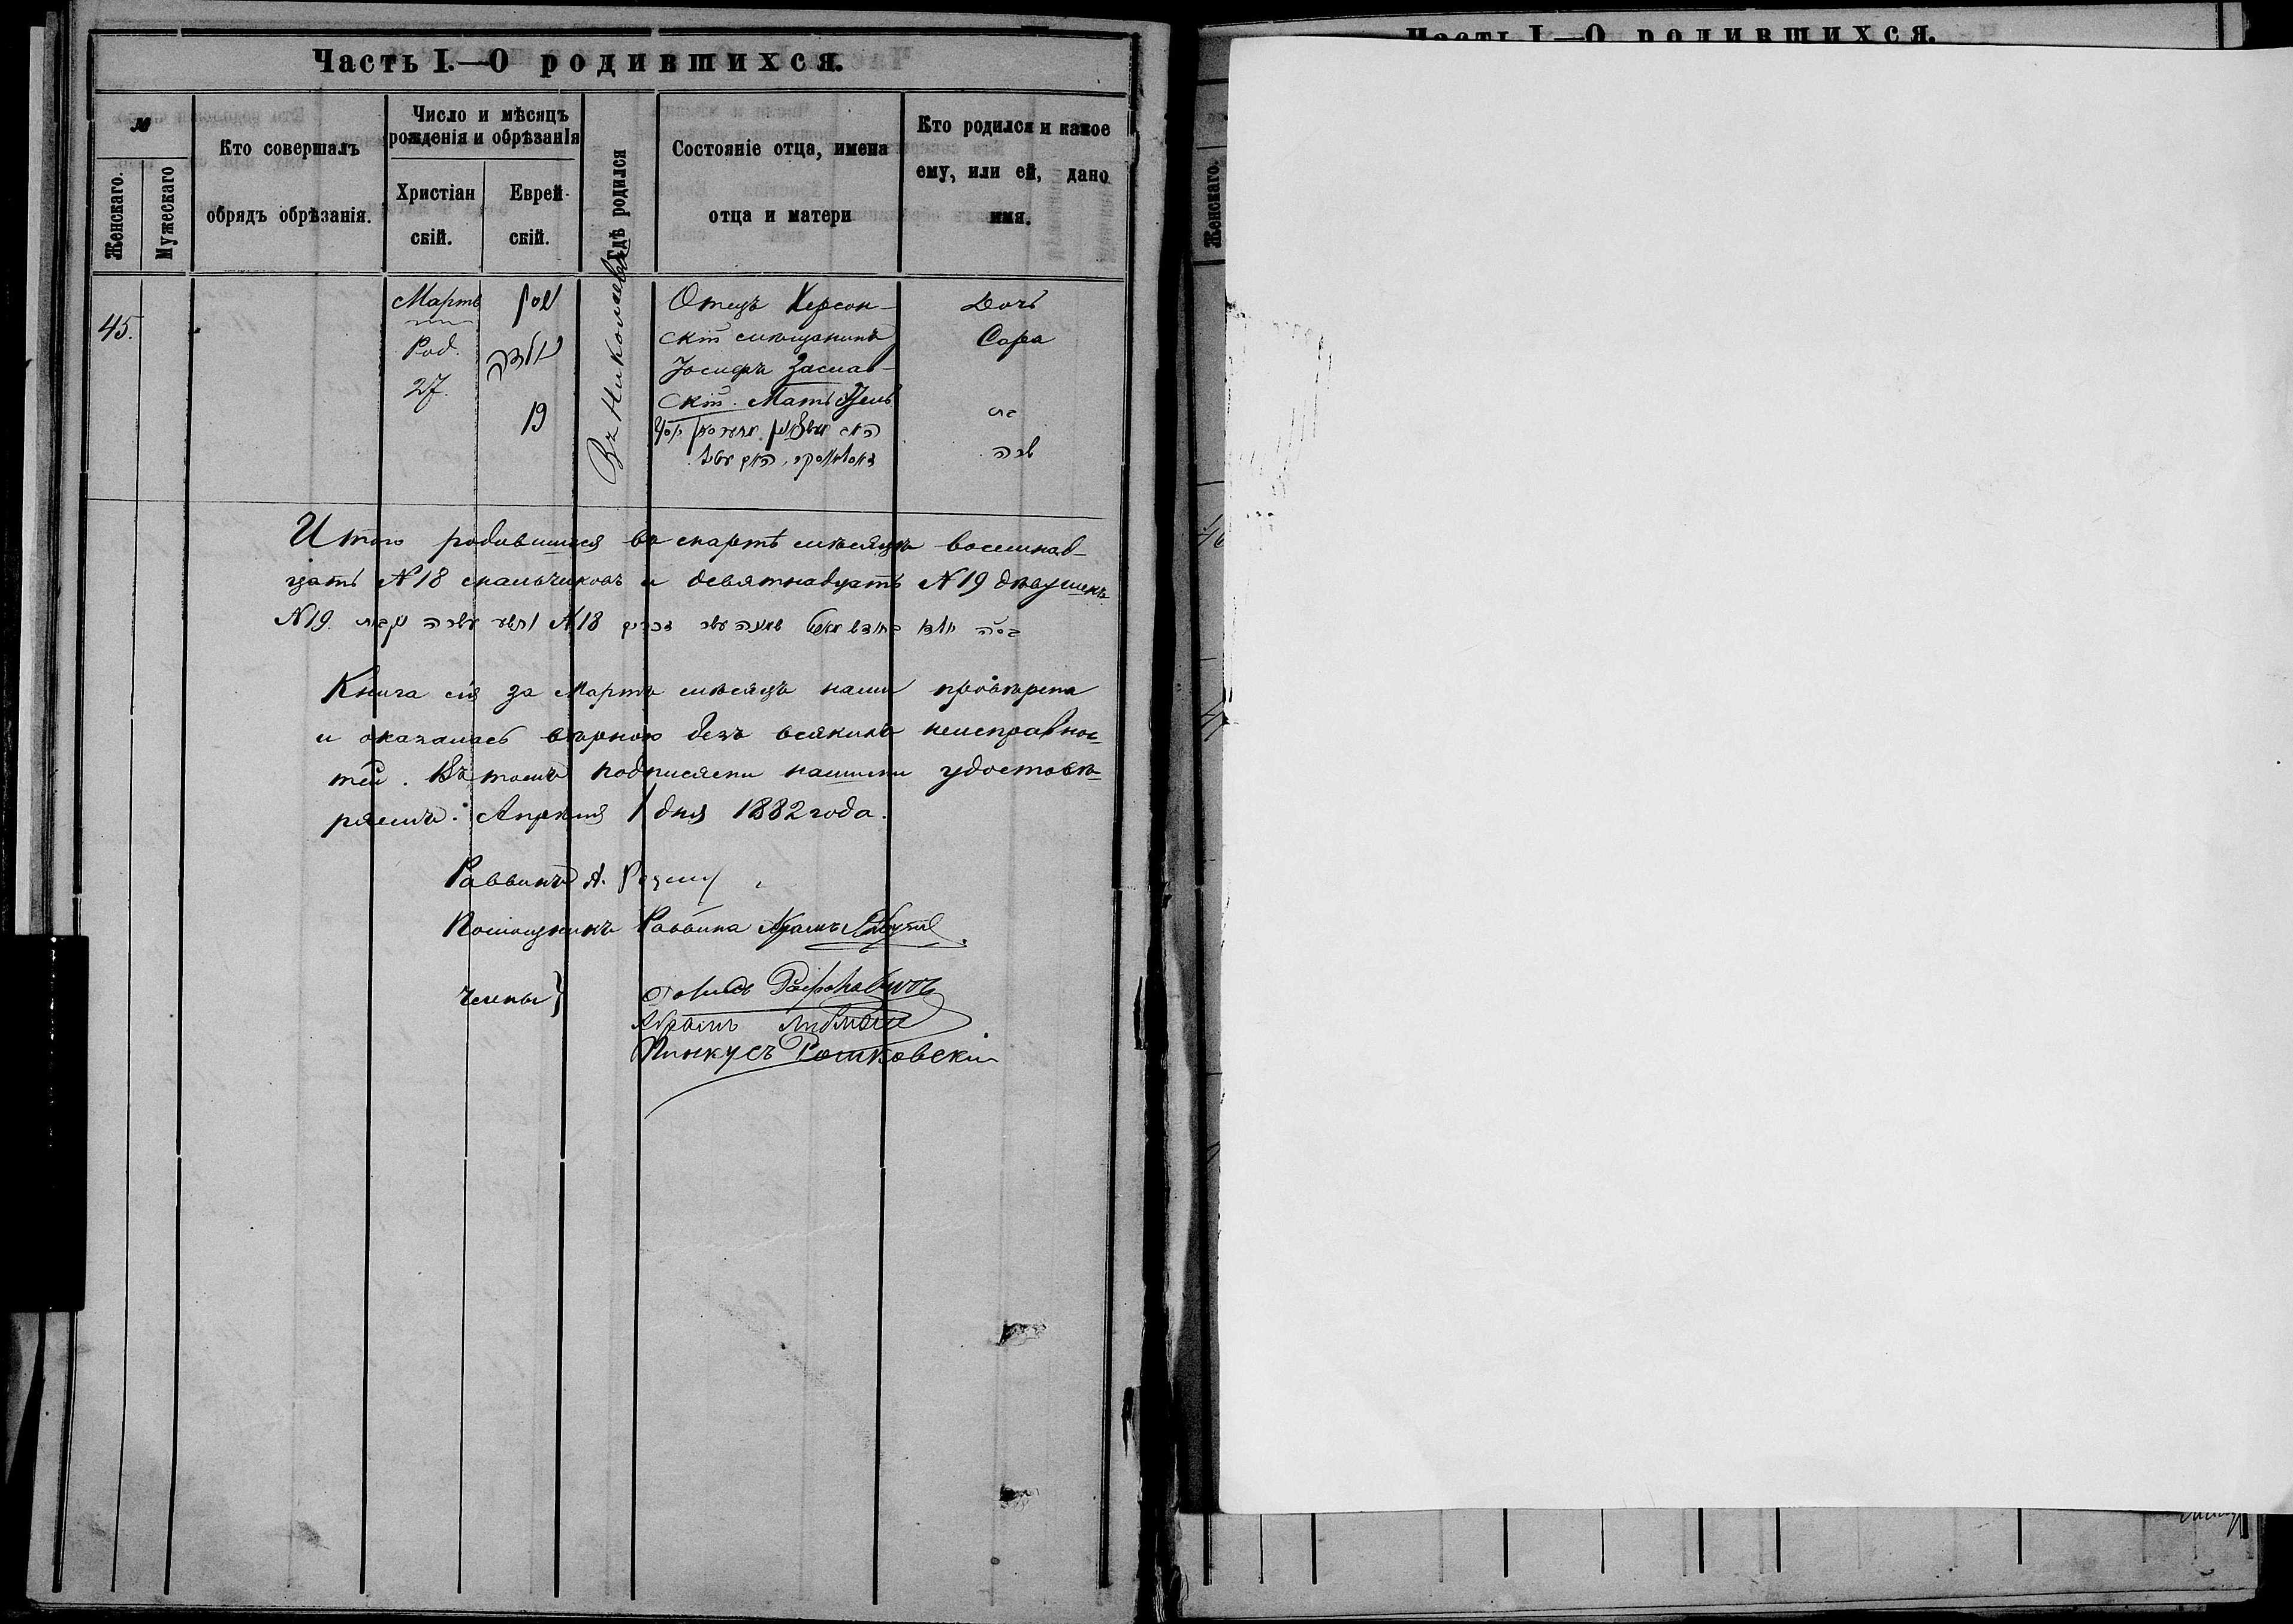 Часть I.—О родившихся.
№
Женскаго.
Мужескаго
Кто совершалъ
обрядъ обрѣзанія.
Число и мѣсяцъ
рожденія и обрѣзанія
Христіан
скій.
Еврей-
скій.
Гдѣ родился
Состояніе отца, имена
отца и матери
Кто родился и какое
ему, или ей, дано
имя.
45.
Мартъ
Род.
27.
ניסן
נולדה
19
Въ Николаевѣ
Отецъ Херсон-
скій мѣщанинъ
Іосифъ Заслав-
скій. Мать
Дочь
Сара
בת
שרה
Итого родившихся въ мартѣ мѣсяцѣ восемнад-
цать №18 мальчиковъ и девятнадцать №19 дѣвушекъ
זכרים №18 №19.
Книга сія за Мартъ мѣсяцъ нами провѣрена
и оказалась вѣрною безъ всякихъ неисправнос-
тей. Въ томъ подписями нашими удостовѣ-
ряемъ. Апрѣля 1 дня 1882 года.
Раввинъ А.
Помощникъ Раввина
Члены}
Абрамъ
Пинкусъ Рошковскій
Часть I.—О родившихся.
Женскаго.